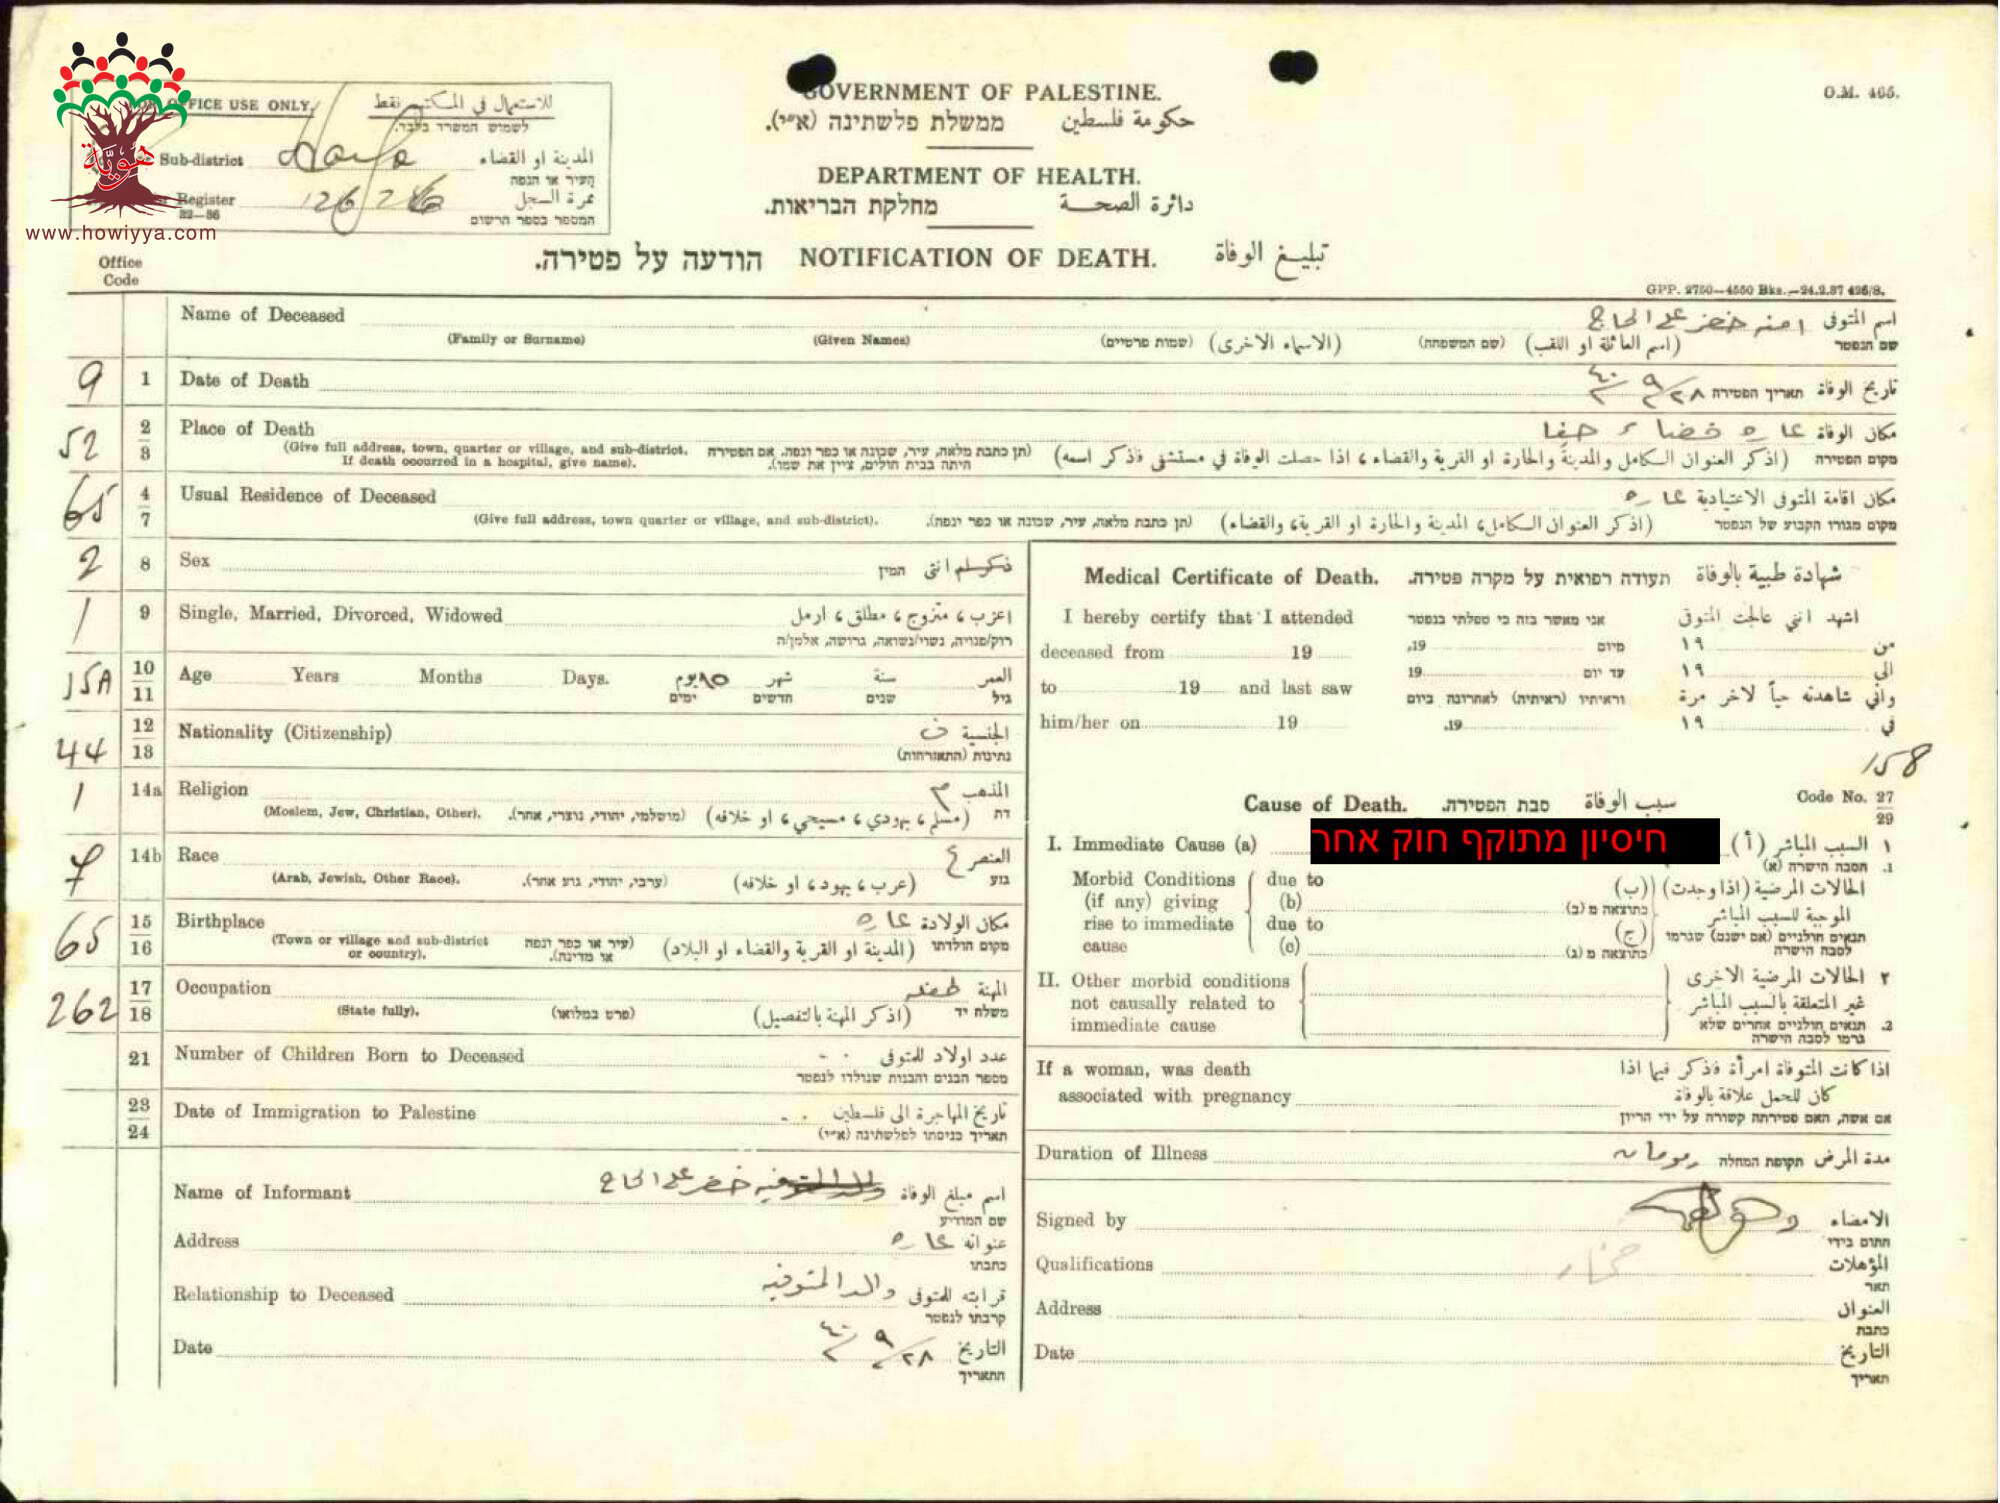 www.howiyya.com
هويّة
FOR OFFICE USE ONLY. للاستعمال في المكتب فقط
לשמוש המשרד בלבד.
Sub-district Haifa المدينة او القضاء
העיר או הנפה
Register نمرة السجل
32—36 המספר בספר הרשום
O.M. 465.
GOVERNMENT OF PALESTINE.
ממשלת פלשתינה (א"י). حكومة فلسطين
DEPARTMENT OF HEALTH.
מחלקת הבריאות. دائرة الصحة
הודעה על פטירה. NOTIFICATION OF DEATH. تبليغ الوفاة
Office
Code
GPP. 2750—4550 Bks.—24.2.37 426/8.
Name of Deceased امنه خضر علي الحاج اسم المتوفى
(Family or Surname) (Given Names) (שמות פרטיים) (الاسماء الاخرى) (שם המשפחה) (اسم العائلة او اللقب) שם הנפטר
9 1 Date of Death تاريخ الوفاة תאריך הפטירה ٢٨/٩/٤٠
52 2/3 Place of Death مكان الوفاة عاره قضاء حيفا
(Give full address, town, quarter or village, and sub-district. If death occurred in a hospital, give name).
(תן כתבת מלאה, עיר, שכונה או כפר ונפה. אם הפטירה היתה בבית חולים, ציין את שמו).
(اذكر العنوان الكامل والمدينة والحارة او القرية والقضاء، اذا حصلت الوفاة في مستشفى فاذكر اسمه) מקום הפטירה
65 4/7 Usual Residence of Deceased مكان اقامة المتوفى الاعتيادية عاره
(Give full address, town quarter or village, and sub-district). (תן כתבת מלאה, עיר, שכונה או כפר ונפה). (اذكر العنوان الكامل، المدينة والحارة او القرية، والقضاء) מקום מגורו הקבוע של הנפטר
2 8 Sex انثى המין
1 9 Single, Married, Divorced, Widowed اعزب، متزوج، مطلق، ارمل
רוק/פנויה, נשוי/נשואה, גרושה, אלמן/ה
15A 10/11 Age Years Months Days. ١٥ يوم شهر سنة العمر
ימים חדשים שנים גיל
44 12/13 Nationality (Citizenship) الجنسية ف
נתינות (התאזרחות)
1 14a Religion المذهب م
(Moslem, Jew, Christian, Other). (מושלמי, יהודי, נוצרי, אחר). (مسلم، يهودي، مسيحي، او خلافه) דת
7 14b Race العنصر ع
(Arab, Jewish, Other Race). (ערבי, יהודי, גזע אחר). (عرب، يهود، او خلافه) גזע
65 15/16 Birthplace مكان الولادة عاره
(Town or village and sub-district or country). (עיר או כפר ונפה או מדינה). (المدينة او القرية والقضاء او البلاد) מקום הולדתו
262 17/18 Occupation المهنة طفله
(State fully). (פרט במלואו) (اذكر المهنة بالتفصيل) משלח יד
21 Number of Children Born to Deceased عدد اولاد للمتوفى
מספר הבנים והבנות שנולדו לנפטר
23/24 Date of Immigration to Palestine تاريخ المهاجرة الى فلسطين
תאריך כניסתו לפלשתינה (א"י)
Name of Informant اسم مبلغ الوفاة خضر علي الحاج
שם המודיע
Address عنوانه عاره
כתבתו
Relationship to Deceased قرابته للمتوفى والد المتوفيه
קרבתו לנפטר
Date التاريخ ٢٨/٩/٤٠
התאריך
Medical Certificate of Death. תעודה רפואית על מקרה פטירה. شهادة طبية بالوفاة
I hereby certify that I attended אני מאשר בזה כי טפלתי בנפטר اشهد انني عالجت المتوفى
deceased from 19 19, מיום من ١٩
to 19 and last saw 19 עד יום الى ١٩
וראיתיו (ראיתיה) לאחרונה ביום واني شاهدته حياً لآخر مرة
him/her on 19 19. في ١٩
158
Cause of Death. סבת הפטירה. سبب الوفاة Code No. 27/29
I. Immediate Cause (a) חיסיון מתוקף חוק אחר ١ السبب المباشر (أ)
1. הסבה הישרה (א)
Morbid Conditions (if any) giving rise to immediate cause due to (b) due to (c)
الحالات المرضية (اذا وجدت) (ب)
כתוצאה מ (ב) الموجبة للسبب المباشر
(ج) תנאים חולניים (אם ישנם) שגרמו
כתוצאה מ (ג) לסבה הישרה
II. Other morbid conditions ٢ الحالات المرضية الاخرى
not causally related to غير المتعلقة بالسبب المباشر
immediate cause 2. תנאים חולניים אחרים שלא
גרמו לסבה הישרה
If a woman, was death اذا كانت المتوفاة امرأة فذكر فيما اذا
associated with pregnancy كان للحمل علاقة بالوفاة
אם אשה, האם פטירתה קשורה על ידי הריון
Duration of Illness مدة المرض תקופת המחלה يومان
Signed by الامضاء
חתום בידי
Qualifications المؤهلات مختار
תאר
Address العنوان
כתבת
Date التاريخ
תאריך